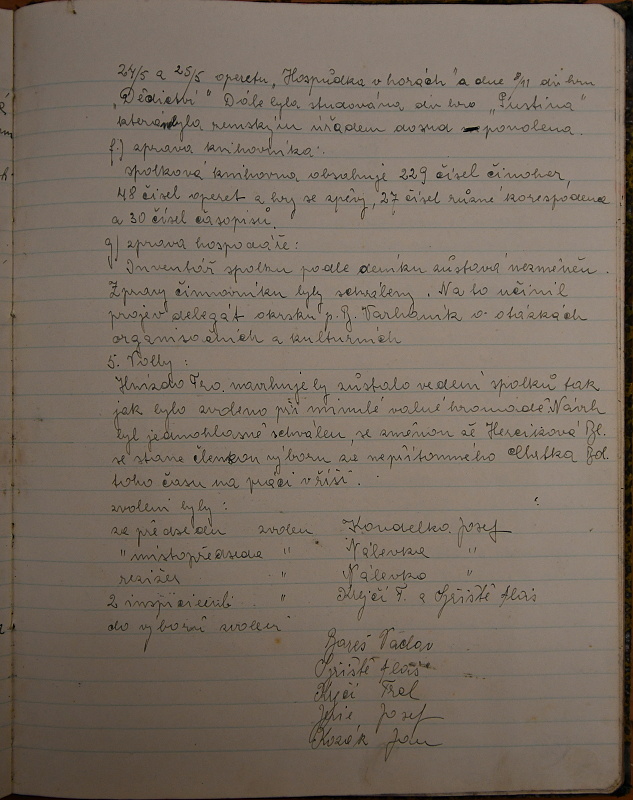 24/5 a 25/5 operetu „Hospůdka v horách" a dne 8/11 div. hru
„Dědictví" Dále byla studována div. hra „Pustina"
která byla zemským úřadem dosud povolena.
f.) zpráva knihovníka:
spolková knihovna obsahuje 229 čísel činoher,
48 čísel operet a hry se zpěvy, 27 čísel různé korespodence
a 30 čísel časopisů.
g) zpráva hospodáře:
Inventář spolku podle deníku zůstává nezměněn.
Zprávy činovníků byly schváleny. Na to učinil
projev delegát okrsku p. B. Varhaník o otázkách
organisačních a kulturních
5. Volby:
Hnízdo Fro. navrhuje by zůstalo vedení spolků tak
jak bylo zvoleno při minulé valné hromadě. Návrh
byl jednohlasně schválen se změnou že Hercíková Bl.
se stane členkou výboru za nepřítomného Bd.
toho času na práci v říši.
zvoleni byly:
za předsedu zvolen Koudelka Josef
" místopředseda " Nálevka "
režižer " Nálevka "
2 inspicienti " Krejčí F. a
do výboru zvoleni
Bareš Václav
Krejčí
Josef
Kozák Jan